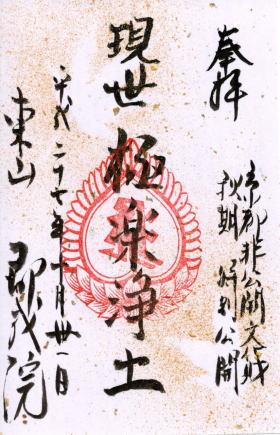 奉拝
京都非公開文化財
秋期 特別公開
現世極楽浄土
平成二十七年十月卅一日
東山 即成院